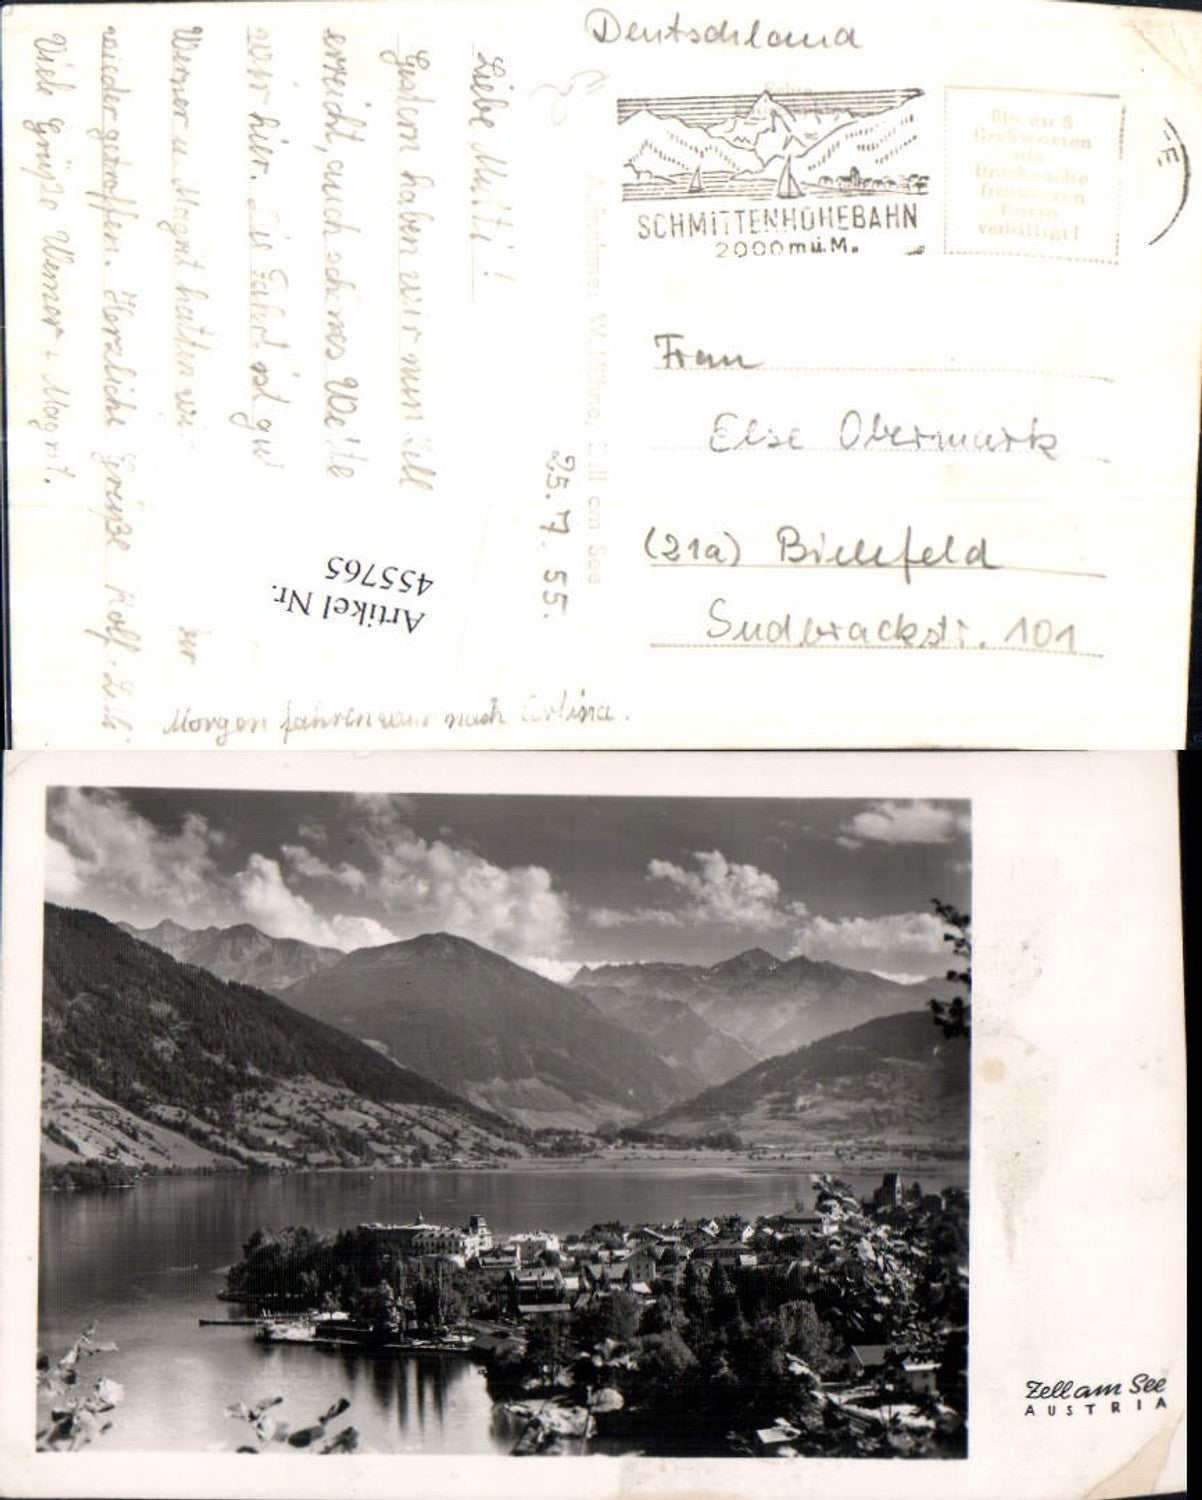 Deutschland
SCHMITTENHÖHEBAHN
2000 m ü. M.
Bis zu 5
Grußworten
als
Drucksache
frankieren
Porto
verbilligt!
Frau
Else Obermark
(21a) Bielefeld
Sudbrackstr. 101
25. 7. 55.
Liebe Mutti!
Gestern haben wir nun Zell
erreicht, auch schönes Wetter
wir hier. Die Fahrt ist gut
Werner u Magrit hatten wir
wieder getroffen. Herzliche Grüße Rolf
Viele Grüße Werner + Magrit.
Morgen fahren wir nach Cortina.
Artikel Nr.
455765
Zell am See
AUSTRIA